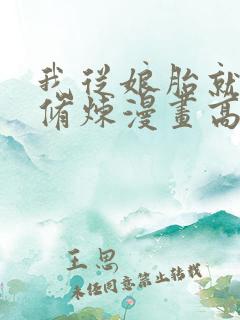 我从娘胎就
脩炼漫畫高
王思
未经同意禁止转载